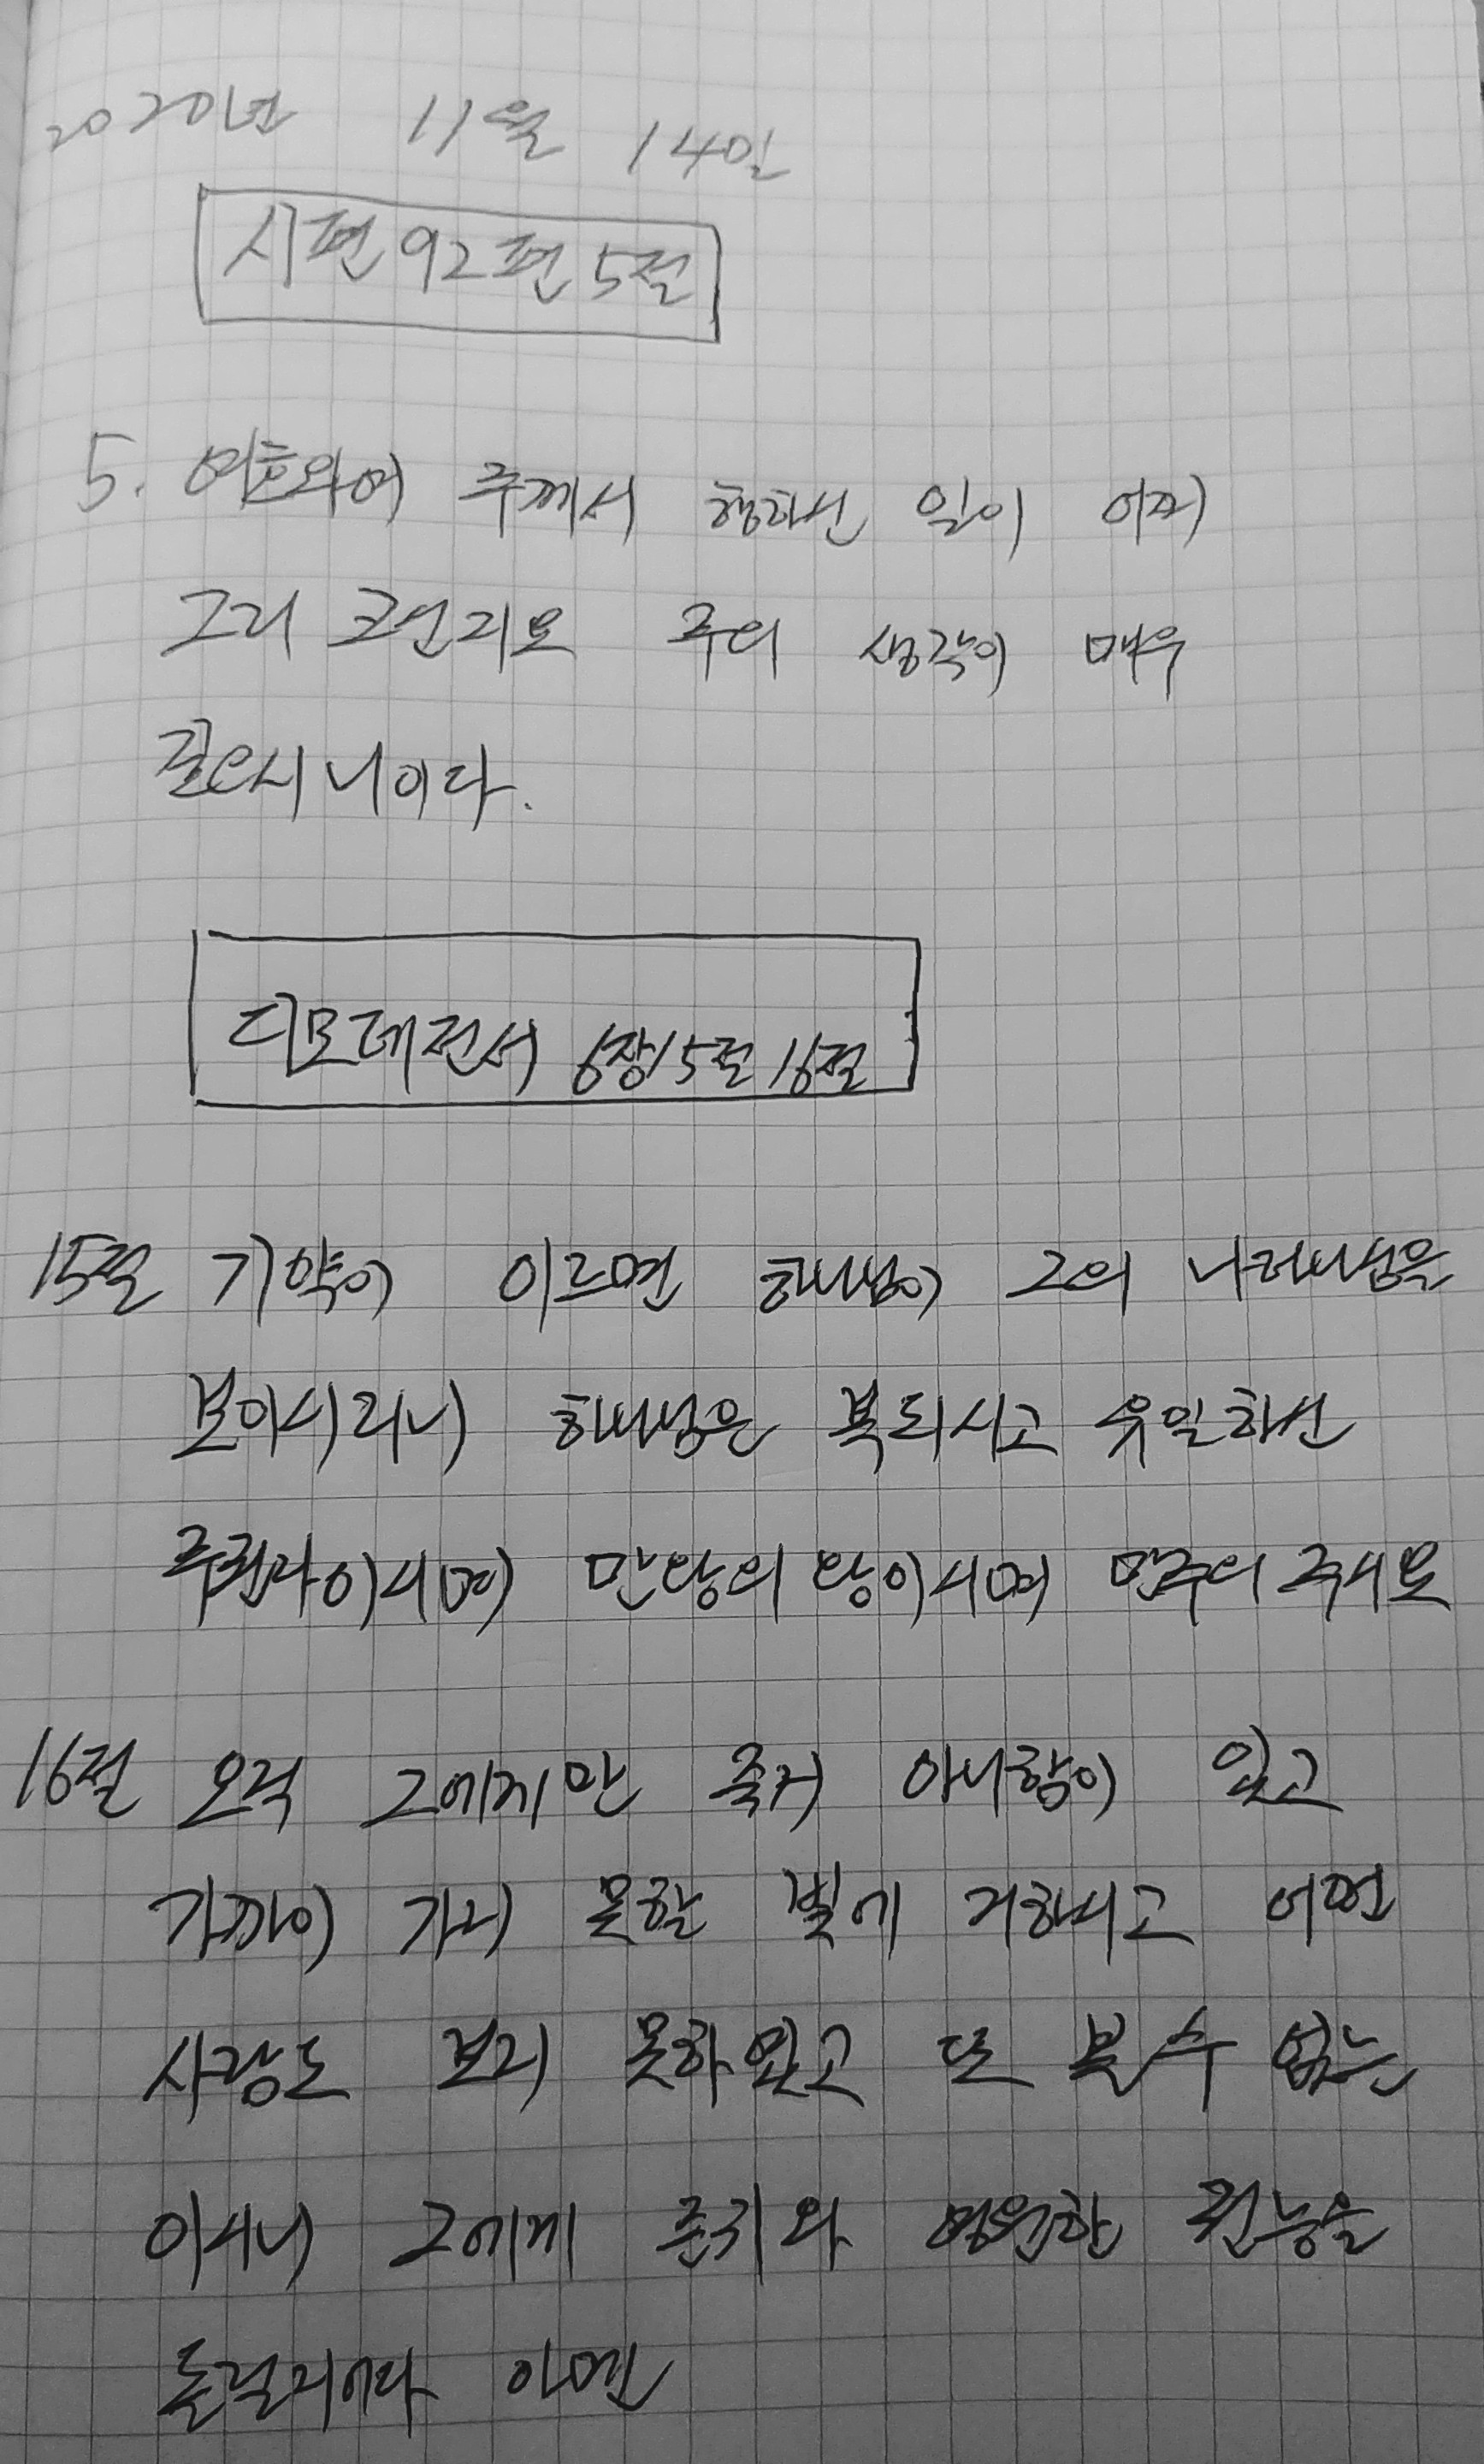 2020년 11월 14일
시편 92편 5절
5. 여호와여 주께서 행하신 일이 어찌
그리 크신지요 주의 생각이 매우
깊으시니이다.
디모데전서 6장15절16절
15절 기약이 이르면 하나님이 그의 나타나심을
보이시리니 하나님은 복되시고 유일하신
주권자이시며 만왕의 왕이시며 만주의 주시요
16절 오직 그에게만 죽지 아니함이 있고
가까이 가지 못할 빛에 거하시고 어떤
사람도 보지 못하였고 또 볼 수 없는
이시니 그에게 존귀와 영원한 권능을
돌릴지어다 아멘